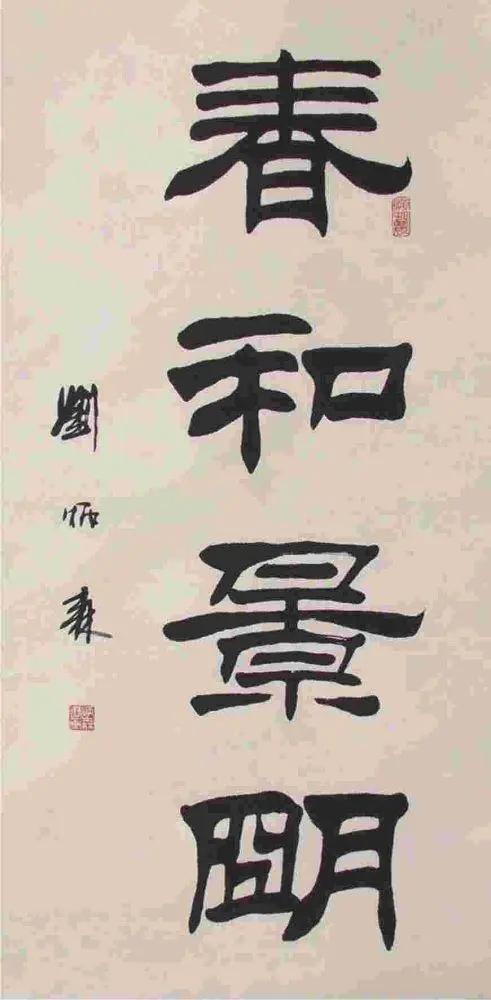 春和景明
劉炳森